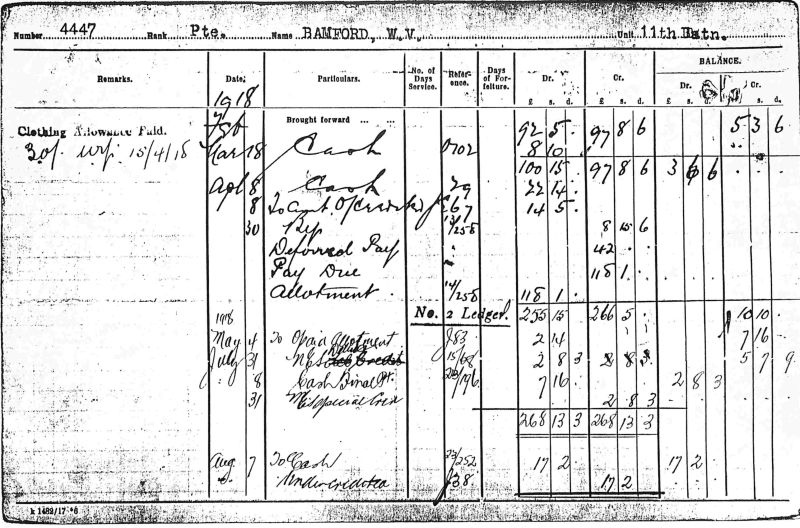 Number 4447 Rank Pte. Name BAMFORD, W.V. Unit 11th Batn.
BALANCE.
Remarks. Date. Particulars. No. of Days Service. Reference. Days of Forfeiture. Dr. Cr. Dr. Cr.
£ s. d. £ s. d. £ s. d. £ s. d.
1918
Clothing Allowance Paid. Feb Brought forward ... ... 92 5 97 8 6 5 3 6
30/- 15/4/18 Mar 18 Cash 8 10
100 15 97 8 6 3 6 6
Apl 8 Cash 29 22 14
8 To 67 14 5
30 13/258 8 15 6
Deferred Pay 42
Pay Due 118 1
Allotment 14/258 118 1
1918 No. 2 Ledger. 255 15 266 5 10 10
May 4 To Allotment J83 2 14 7 16
July 31 15/68 2 8 3 5 7 9
8 Cash Final Pt. 7 16 2 8 3
31 Special 2 8 3
268 13 3 268 13 3
Aug 7 To Cash 23/252 17 2 17 2
Undercredited J38 17 2
k 1482/17